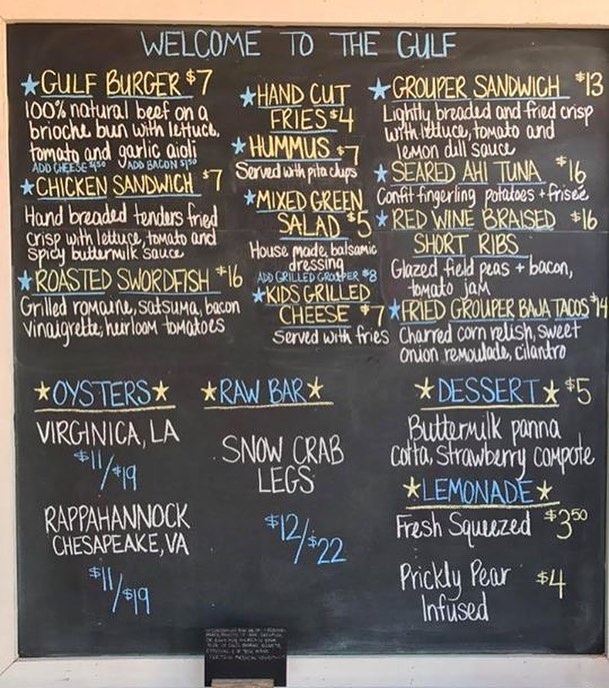 WELCOME TO THE GULF
GULF BURGER $7
100% natural beef on a
brioche bun with lettuce,
tomato and garlic aioli
ADD CHEESE $1.50 ADD BACON $1.50
CHICKEN SANDWICH $7
Hand breaded tenders fried
crisp with lettuce, tomato and
spicy buttermilk sauce
ROASTED SWORDFISH $16
Grilled romaine, satsuma, bacon
vinaigrette, heirloom tomatoes
HAND CUT
FRIES $4
HUMMUS $7
Served with pita chips
MIXED GREEN
SALAD $5
House made, balsamic
dressing
ADD GRILLED GROUPER $8
KIDS GRILLED
CHEESE $7
Served with fries
GROUPER SANDWICH $13
Lightly breaded and fried crisp
with lettuce, tomato and
lemon dill sauce
SEARED AHI TUNA $16
Confit fingerling potatoes + frisée
RED WINE BRAISED $16
SHORT RIBS
Glazed field peas + bacon,
tomato jam
FRIED GROUPER BAJA TACOS $14
Charred corn relish, sweet
onion remoulade, cilantro
OYSTERS
VIRGINICA, LA
$11/$19
RAPPAHANNOCK
CHESAPEAKE, VA
$11/$19
RAW BAR
SNOW CRAB
LEGS
$12/$22
DESSERT $5
Buttermilk panna
cotta, Strawberry compote
LEMONADE
Fresh Squeezed $3.50
Prickly Pear $4
Infused